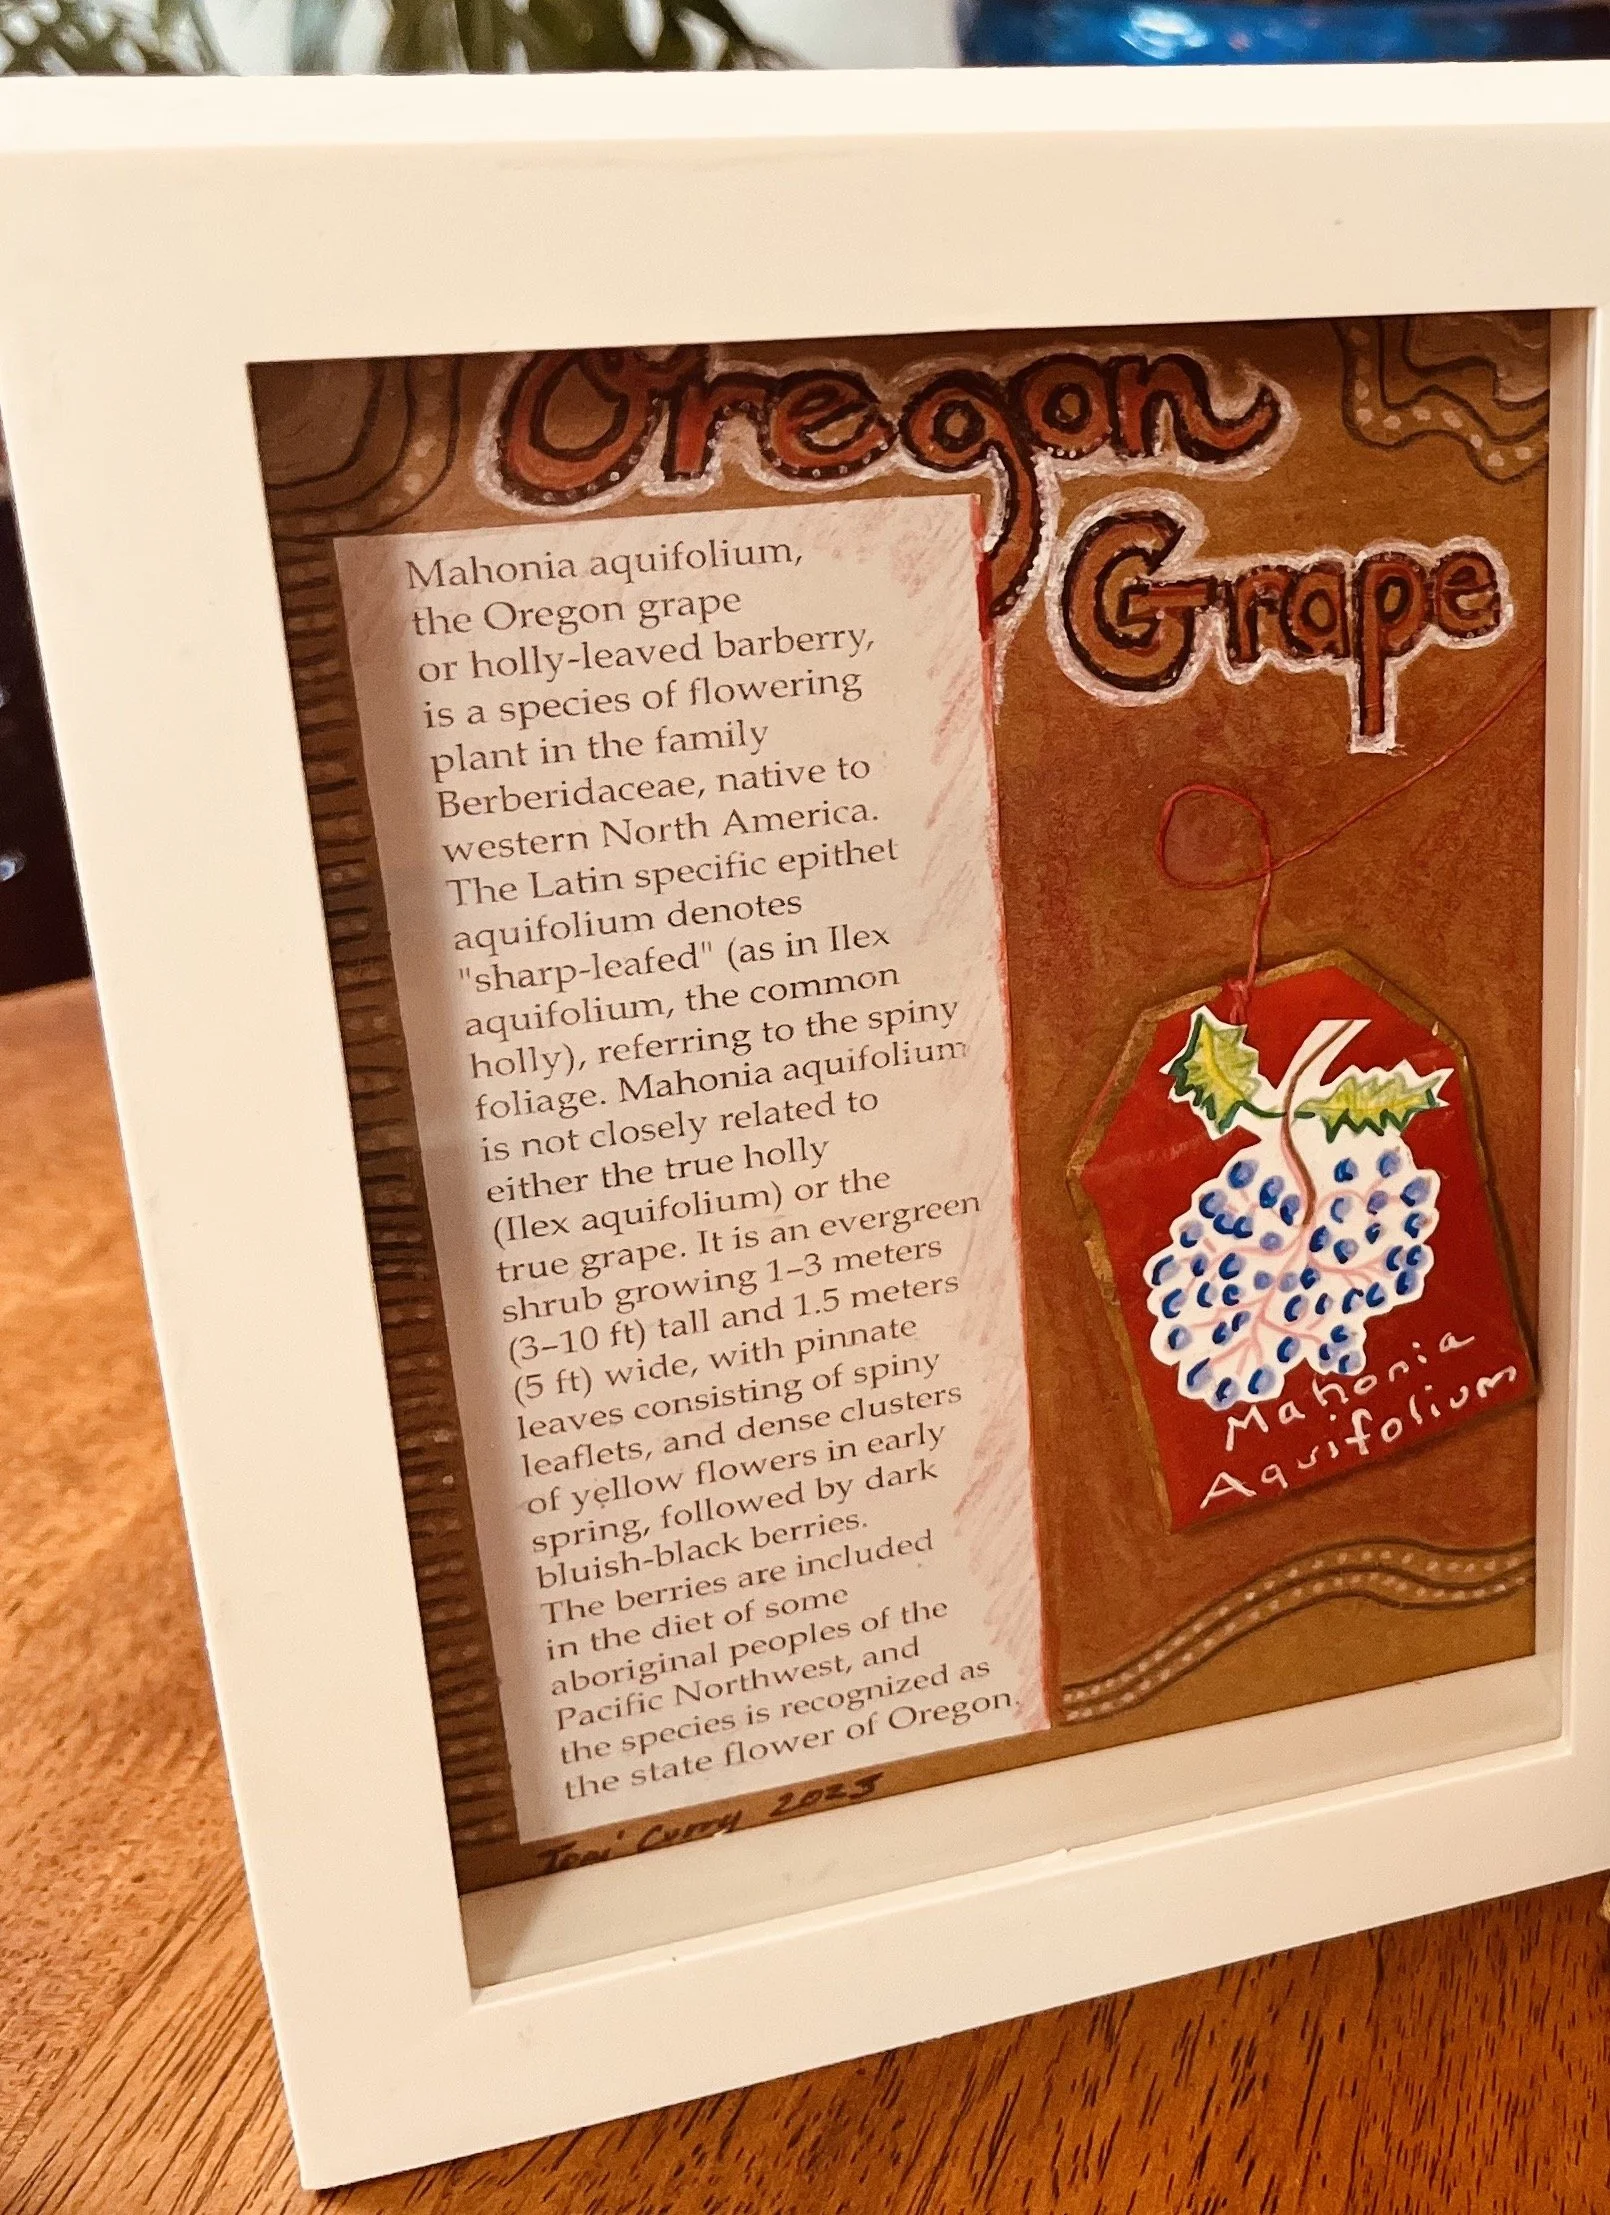 Oregon
Grape
Mahonia aquifolium,
the Oregon grape
or holly-leaved barberry,
is a species of flowering
plant in the family
Berberidaceae, native to
western North America.
The Latin specific epithet
aquifolium denotes
"sharp-leafed" (as in Ilex
aquifolium, the common
holly), referring to the spiny
foliage. Mahonia aquifolium
is not closely related to
either the true holly
(Ilex aquifolium) or the
true grape. It is an evergreen
shrub growing 1–3 meters
(3–10 ft) tall and 1.5 meters
(5 ft) wide, with pinnate
leaves consisting of spiny
leaflets, and dense clusters
of yellow flowers in early
spring, followed by dark
bluish-black berries.
The berries are included
in the diet of some
aboriginal peoples of the
Pacific Northwest, and
the species is recognized as
the state flower of Oregon.
Mahonia
Aquifolium
Curry 2023